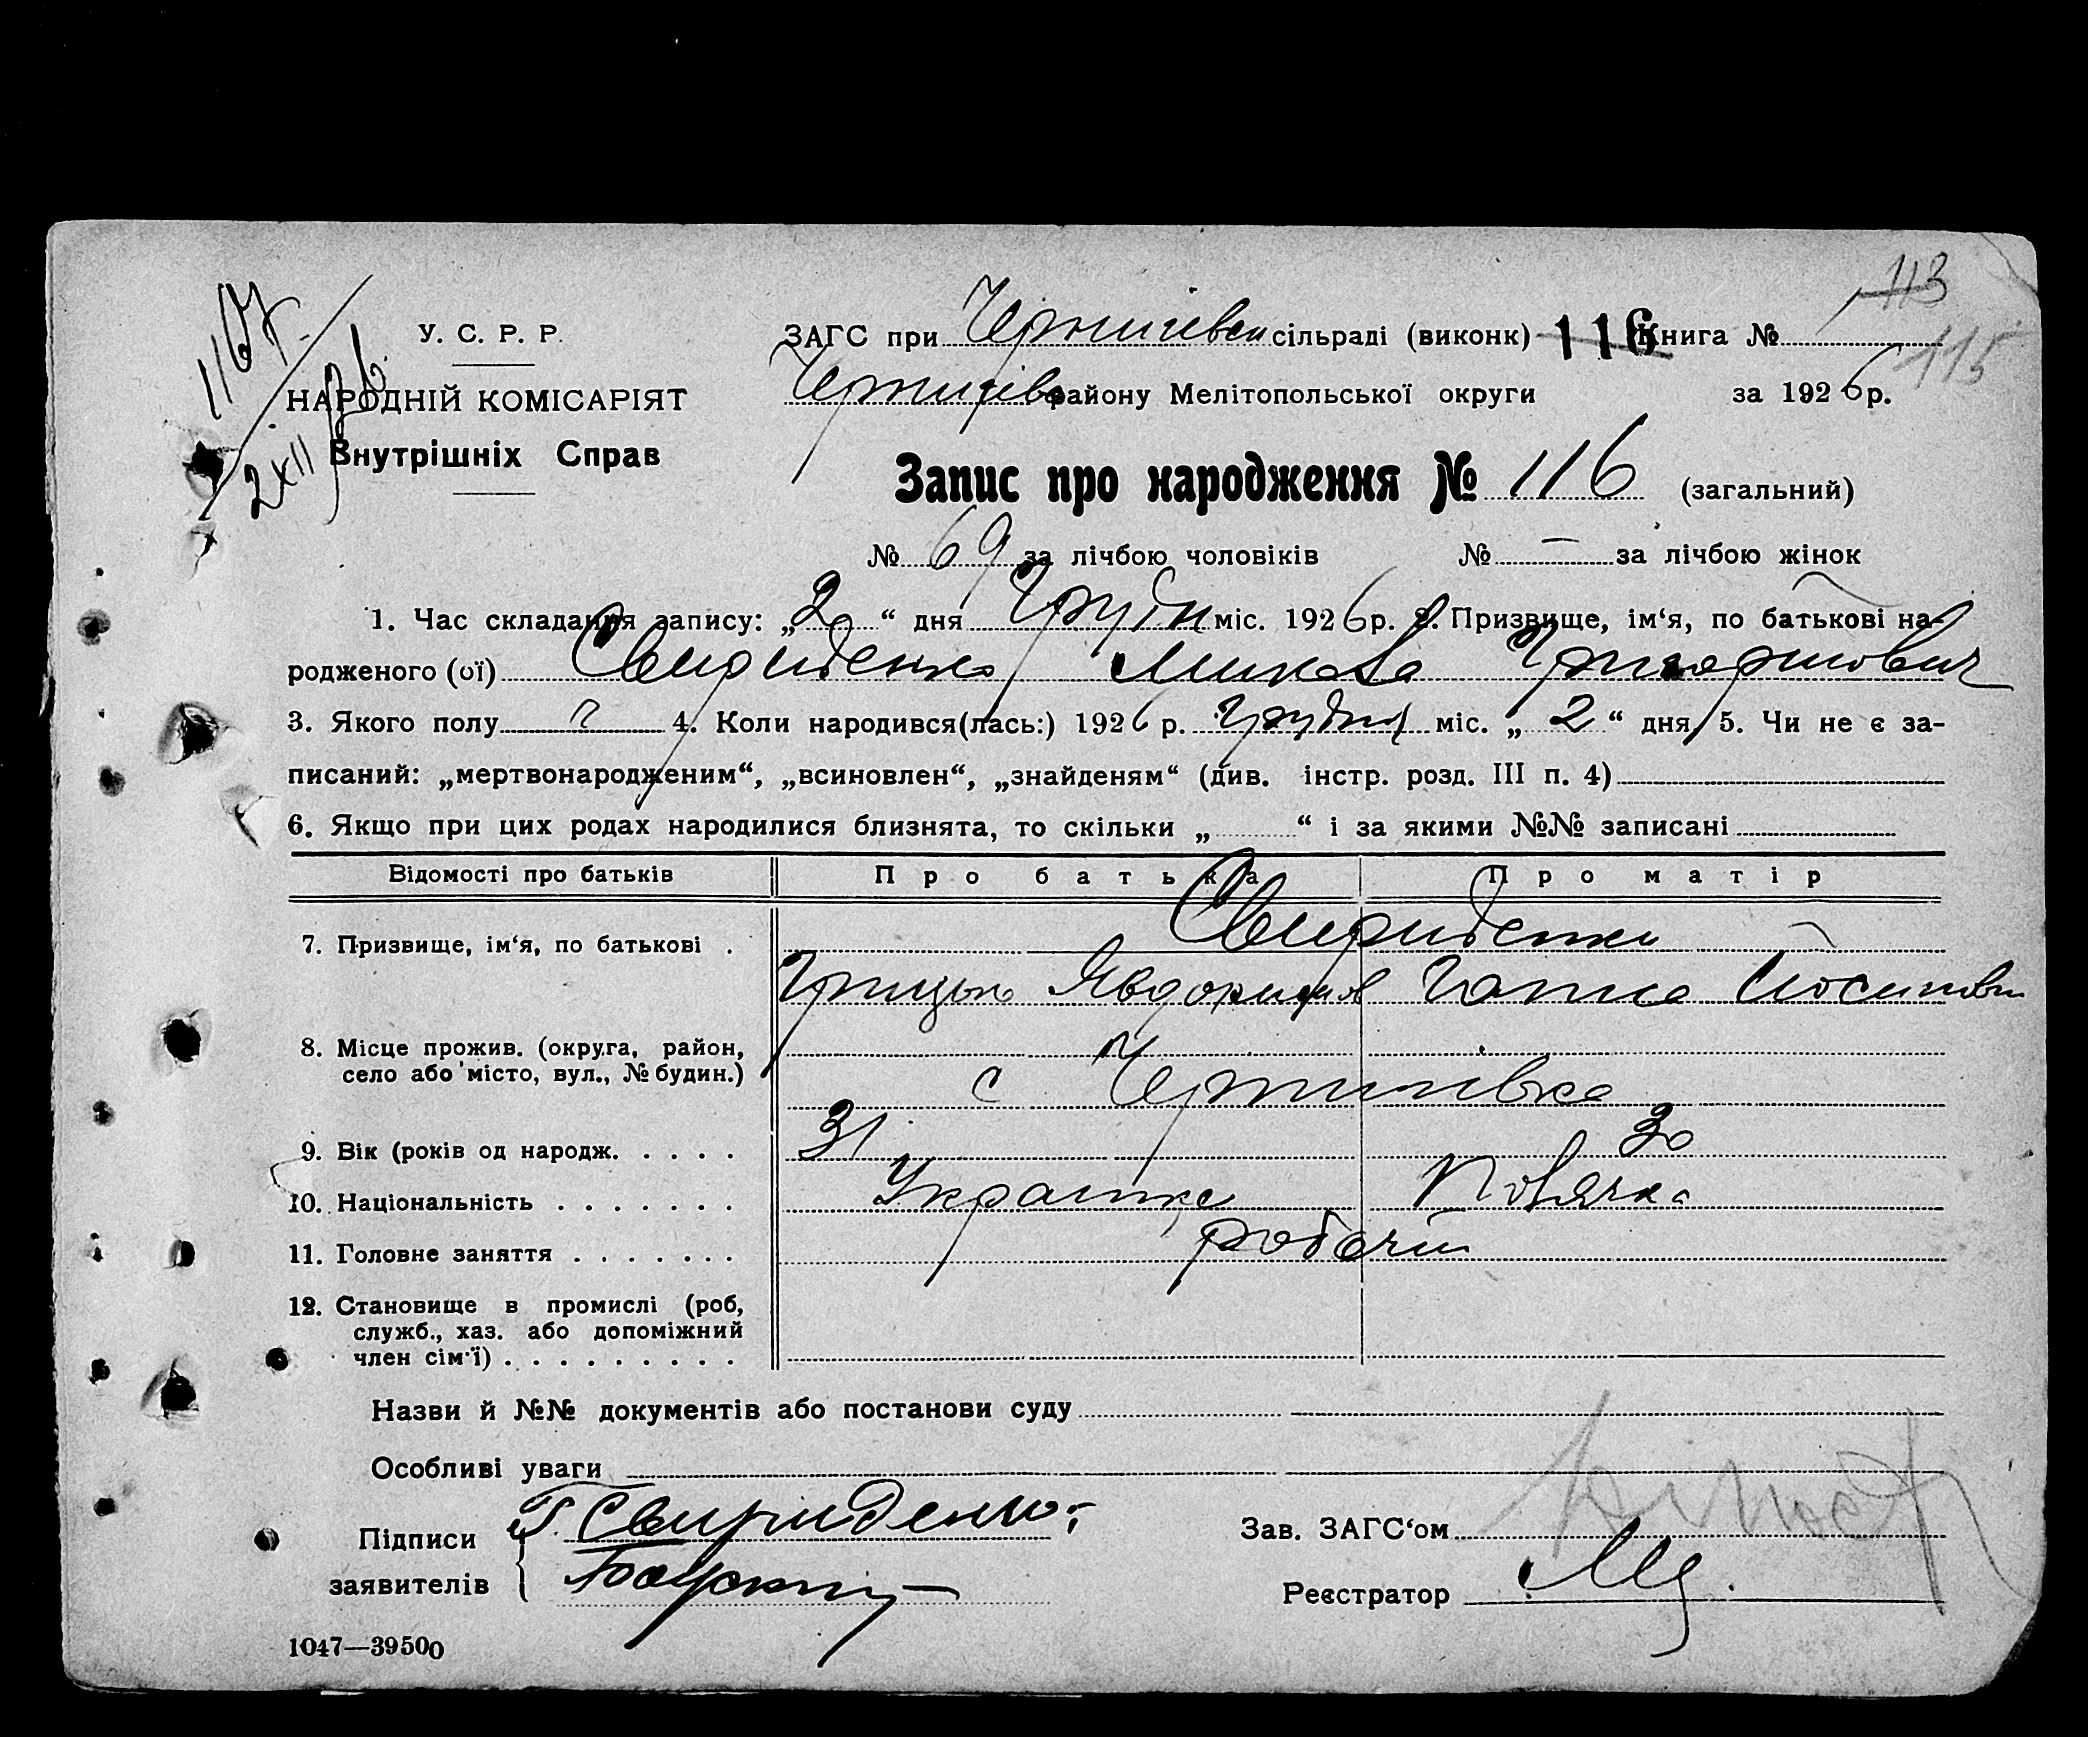 113
115
1167
2 XII 26
У. С. Р. Р.
НАРОДНІЙ КОМІСАРІЯТ
Внутрішніх Справ
ЗАГС при Чернігівськ сільраді (виконк) 116 Книга №
Чернігівс району Мелітопольської округи за 1926 р.
Запис про народження № 116 (загальний)
№ 69 за лічбою чоловіків № — за лічбою жінок
1. Час складання запису: „2“ дня Грудн міс. 1926 р. 2. Призвище, ім‘я, по батькові на-
родженого (ої) Свириденко Микола Григорович
3. Якого полу ч 4. Коли народився(лась:) 1926 р. Грудня міс. „2“ дня 5. Чи не є за-
писаний: „мертвонародженим“, „всиновлен“, „знайденям“ (див. інстр. розд. III п. 4)
6. Якщо при цих родах народилися близнята, то скільки „ “ і за якими №№ записані
Відомості про батьків Про батька Про матір
7. Призвище, ім‘я, по батькові . Свириденки
Грицько Ганна Йосипівн
8. Місце прожив. (округа, район,
село або місто, вул., № будин.) с Чернігівка
9. Вік (років од народж. . . . . 31 30
10. Національність . . . . . . . Українкс
11. Головне заняття . . . . . . . робочий
12. Становище в промислі (роб,
служб., хаз. або допоміжний
член сім‘ї) . . . . . . . . .
Назви й №№ документів або постанови суду
Особливі уваги
Підписи Г. Свириденко
заявителів
Зав. ЗАГС‘ом
Реєстратор
1047—39500